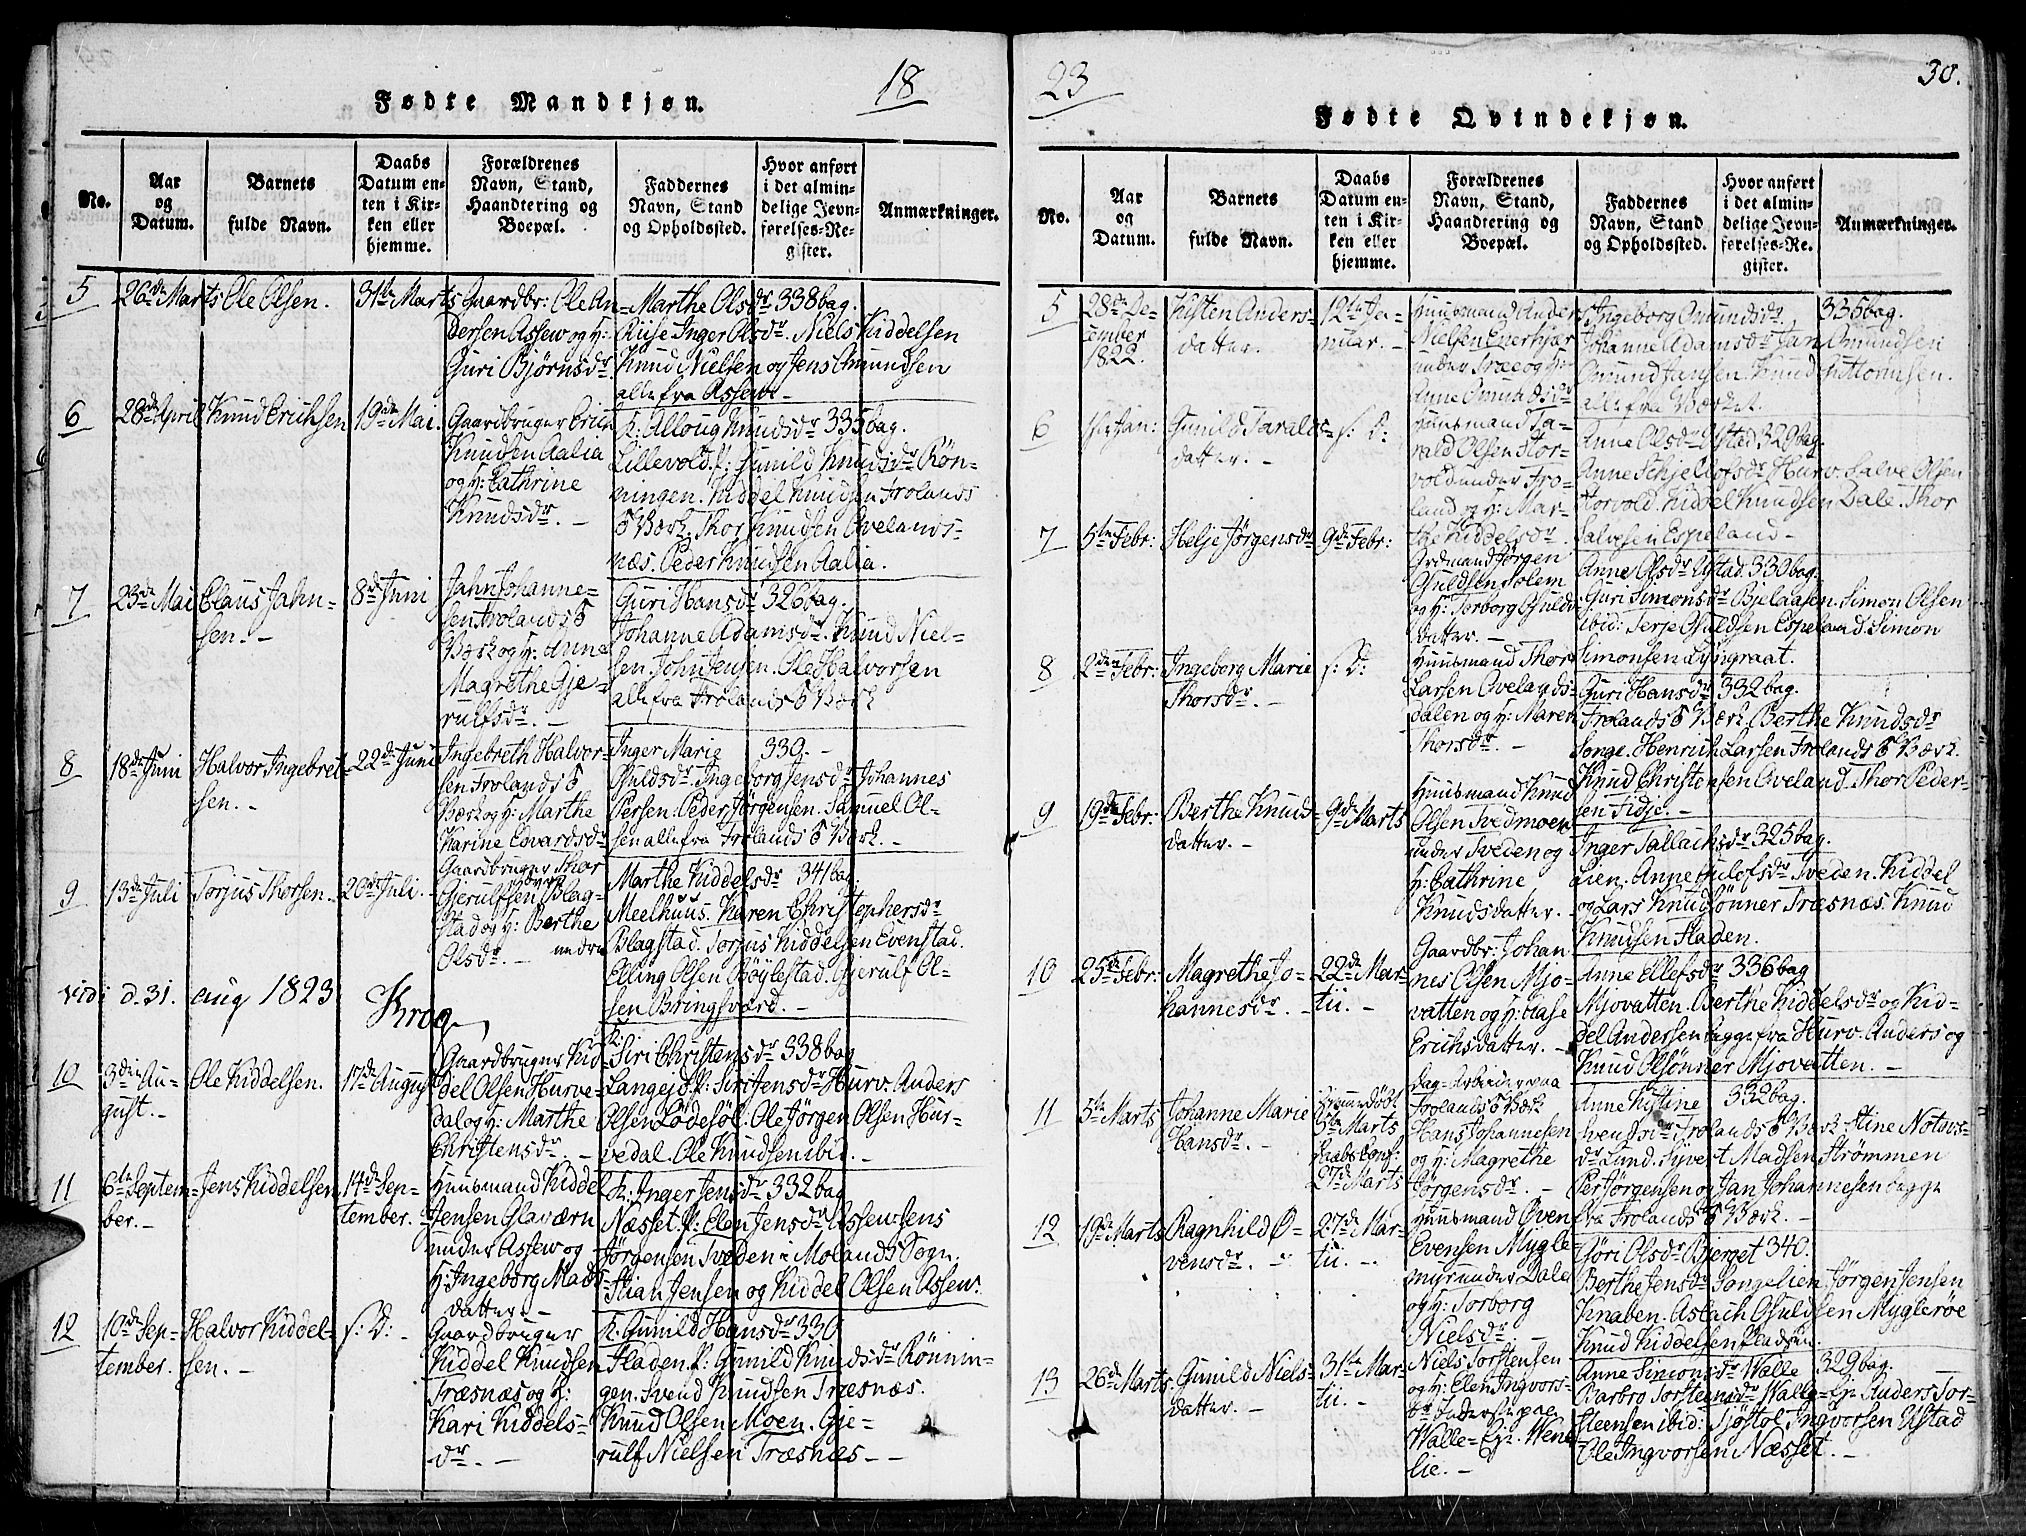 18
Fødte Mandkjøn.
No.
Aar
og
Datum.
Barnets
fulde Navn.
Daabs
Datum en-
ten i Kir-
ken eller
hjemme.
Forældrenes
Navn, Stand,
Haandtering og
Boepæl.
Faddernes
Navn, Stand
og Opholdssted.
Hvor anført
i det almin-
delige Jevn-
førelses-Re-
gister.
Anmærkninger.
5
26de Marts
Ole Olsen.
31te Marts
Gaardbr: Ole An-
dersen Assew og H:
Guri Bjørnsdr.
Marthe Olsdr 338 bag.
Rise Inger Olsdr. Niels Kiddelsen
Knud Nielsen og Jens Omundsen
alle fra Assew. -
6
28de April
Knud Erichsen
19de Mai.
Gaardbruger Erich
Knudsen Aalia
og H: Cathrine
Knudsdr. -
K: Alloug Knudsdr 335 bag.
Lillevold. P: Gunild Knudsdr Røn-
ningen. Kiddel Knudsen Frolands
Værk. Thor Knudsen Ovelands-
næs. Peder Knudsen Aalia.
7
23de Mai
Claus Jahn-
sen. -
8de Juni
Jahn Johanne-
sen Frolands
Værk og H: Anna
Magrethe Gje-
rulfsdr. -
Guri Hansdr 326 bag.
Johanne Adamsdr. Knud Niel-
sen John Jensen. Ole Halvorsen
alle fra Frolands Værk
8
18de Juni
Halvor Ingebret-
sen. -
22de Juni
Ingebreth Halvor-
sen Frolands
Værk og H: Marthe
Karine Edvardsdr
Inger Marie 339. -
Osuldsdr. Ingeborg Jensdr Johannes
Persen. Peder Jørgensen. Samuel Ol-
sen alle fra Frolands Værk. -
9
13de Juli
Torjus Thorsen.
20de Juli.
Gaardbruger Thor
Gjerulfsen øvre Blag-
stad og H: Berthe
Olsdr. -
Marthe Kiddelsdr 341 bag.
Meelhuus. Karen Christophersdr
Blagstad. Torjus Kiddelsen Evenstad.
Elling Olsen Bøylestad. Gjerulf Ol-
sen Bringsværd. -
Vidi d. 31. aug 1823
Krog
10
3die Au-
gust. -
Ole Kiddelsen.
17de August
Gaardbruger Kid-
del Olsen Hurve-
dal og H: Marthe
Christensdr. -
K: Siri Christensdr 338 bag
Langejd. P: Siri Jensdr Hurv. Anders
Olsen Lødesøl. Ole Jørgen Olsen Hur-
vedal. Ole Knudsen ibid. -
11
6te Septem-
ber. -
Jens Kiddelsen
14de Sep-
tember.
Huusmand Kiddel
Jensen Glaværn
under Assew og
H: Ingeborg Mads-
datter. -
K: Inger Jensdr 332 bag
Næsset. P: Elen Jensdr Assew Jens
Jørgensen Sveden Molands Sogn.
Stian Jensen og Kiddel Olsen Assew.
12
10de Sep-
tember.
Halvor Kiddel-
sen. -
s: D: -
Gaardbruger
Kiddel Knudsen
Træsnæs og H:
Kari Kiddels-
dr. -
K: Gunild Hansdr 330
Fladen. P: Gunild Knudsdr Rønnin-
gen. Svend Knudsen Træsnæs.
Knud Olsen Moen. Gje-
rulf Nielsen Træsnæs - -
23
30.
Fødte Qvindekjøn.
No.
Aar
og
Datum.
Barnets
fulde Navn.
Daabs
Datum en-
ten i Kir-
ken eller
hjemme.
Forældrenes
Navn, Stand,
Haandtering og
Boepæl.
Faddernes
Navn, Stand
og Opholdssted.
Hvor anført
i det almin-
delige Jevn-
førelses-Re-
gister.
Anmærkninger.
5
28de De-
cember
1822.
Kisten Anders-
datter.
12te Ja-
nuar. -
Huusmand Anders
Nielsen Enerkjær
under Træe og H:
Anne Omundsdr
Ingeborg Omundsdr. 335 bag.
Johanne Adamsdr Jan Omundsen
Omund Jansen. Knud
alle fra Værket.
6
Jan:
Gunild Taralds-
datter. -
s: D:
Huusmand Ta-
rald Olsen Stor-
vold under Fro-
land og H: Mar-
the Kiddelsdr.
Anne Olsdr Ystad 329 bag
Anne Schjellofsdr Hurv. Salve Olsen
Storvold. Kiddel Knudsen Dale. Thor
Salvesen Espeland -
7
5te Febr:
Helje Jørgensdr
9de Febr:
Ordmand Jørgen
Osuldsen Solem
og H: Torborg Osulds-
datter. -
Anne Olsdr Ystad. 330 bag.
Guri Simonsdr Bjelaasen. Simon Olsen
ibid: Terje Osuldsen Espeland. Simon
Simonsen Lyngraat.
8
2den Febr:
Ingeborg Marie
Thorsdr. -
s: D:
Huusmand Thor
Larsen Ovelands-
dalen og H: Maren
Thorsdr. -
Guri Hansdr 332 bag.
Frolands Værk. Berthe Knudsdr
Songe. Henrich Larsen Frolands Værk.
Knud Christensen Oveland. Thor Peder-
sen Fidje. -
9
19de Febr:
Berthe Knuds-
datter. -
9de Marts
Huusmand Knud
Olsen Tvedmoen
under Tveden og
H: Cathrine
Knudsdatter. -
Inger Tallachsdr 325 bag.
Lien. Anne Eulofsdr Tveden. Kiddel
og Lars Knudsønner Træsnæs. Knud
Knudsen Fladen.
10
25de Febr:
Magrethe Jo-
hannesdr. -
22de Mar-
tii. -
Gaardbr: Johan-
nes Olsen Mjo-
vatten og H: Aase
Erichsdatter. -
Anne Ellefsdr 336 bag
Mjovatten. Berthe Kiddelsdr og Kid-
del Andersen begge fra Hurv. Anders og
Knud Olsønner Mjovatten. -
11
5te Marts
Johanne Marie
Hansdr. -
Hiemmedøbt
5te Marts
Daabs Conf:
27de Marts
Dag-Arbeider paa
Frolands Værk
Hans Johannesen
og H: Magrethe
Jørgensdr. -
Anne Kistine 332 bag.
Svensdr Frolands Værk Stine Notous-
dr Lund. Syvert Madsen Strømmen
Per Jørgensen og Jan Johannesen begge
fra Frolands Værk. -
12
19de Marts
Ragnhild Ø-
vensdr. -
27de Mar-
tii. -
Huusmand Øven
Evensen Mygle-
myr under Dale
og H: Torborg
Nielsdr. -
Jöri Olsdr Bjerget 340.
Berthe Jensdr Songelien. Jørgen Jensen
Knaben. Aslach Osuldsen Myglerøe
Knud Kiddelsen Pladsen.
13
26de Marts
Gunild Niels-
datter. -
31te Mar-
tii. -
Niels Torstensen
og H: Elen Ingvors-
dr paa
Walle-Eje. Wene-
lie. -
Anne Simonsdr Walle 329 bag.
Barbro Torstensdr Walle-Eje Anders Tor-
steensen ibid: Sjøstol Ingvorsen Ystad
Ole Ingvorsen Næsset. -